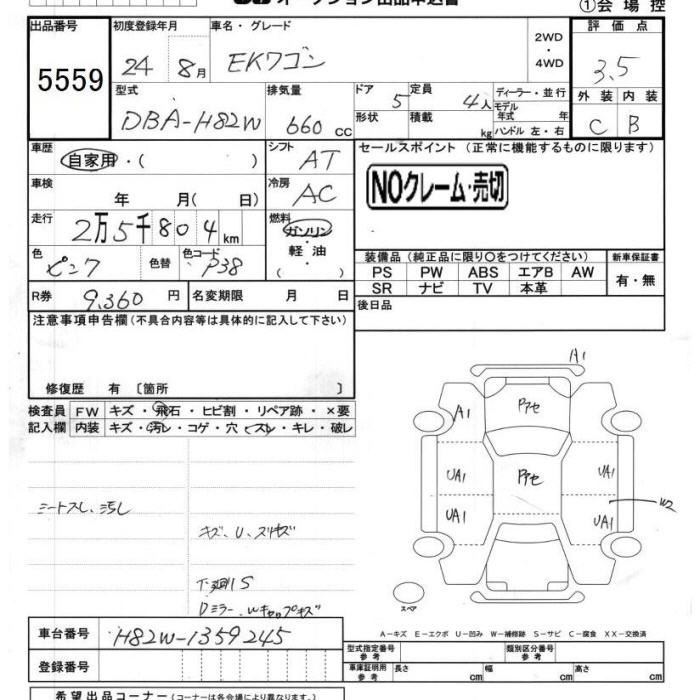 オークション出品申込書
①会場控
出品番号 初度登録年月 車名・グレード 2WD・4WD 評価点
5559 24 8月 EKワゴン 3.5
型式 排気量 ドア 定員 ディーラー・並行 外装 内装
DBA-H82W 660cc 5 4人 モデル年式 年 C B
形状 積載 kg ハンドル 左・右
車歴 シフト セールスポイント (正常に機能するものに限ります)
自家用・( ) AT
NOクレーム・売切
車検 冷房
年 月(日) AC
走行 燃料
2万5千804km ガソリン・軽油
( )
色 色替 色コード 装備品(純正品に限り○をつけてください) 新車保証書
ピンク P38 PS PW ABS エアB AW 有・無
SR ナビ TV 本革
R券 9,360円 名変期限 月 日 後日品
注意事項申告欄(不具合内容等は具体的に記入して下さい)
修復歴 有〔箇所 〕
検査員 FW キズ・飛石・ヒビ割・リペア跡・×要
記入欄 内装 キズ・汚レ・コゲ・穴・スレ・キレ・破レ
A1
A1 アセ
UA1 アセ UA1
W2
UA1 UA1
シートスレ、汚し
キズ、U、スリキズ
下廻りS
Dミラー、Wキャップキズ
スペア
A-キズ E-エクボ U-凹み W-補修跡 S-サビ C-腐食 XX-交換済
車台番号 H82W-1359245
型式指定番号 参考 類別区分番号 参考
登録番号
車庫証明用 参考 長さ cm 幅 cm 高さ cm
希望出品コーナー(コーナーは各会場により異なります。)